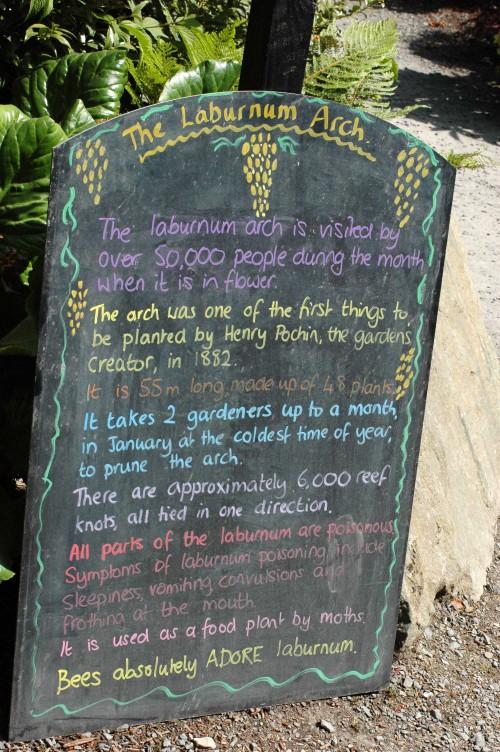 The Laburnum Arch.
The laburnum arch is visited by
over 50,000 people during the month
when it is in flower.
The arch was one of the first things to
be planted by Henry Pochin, the gardens
creator, in 1882.
It is 55m long, made up of 48 plants.
It takes 2 gardeners up to a month,
in January at the coldest time of year,
to prune the arch.
There are approximately 6,000 reef
knots, all tied in one direction.
All parts of the laburnum are poisonous.
Symptoms of laburnum poisoning, include
Sleepiness, vomiting convulsions and
frothing at the mouth.
It is used as a food plant by moths.
Bees absolutely ADORE laburnum.